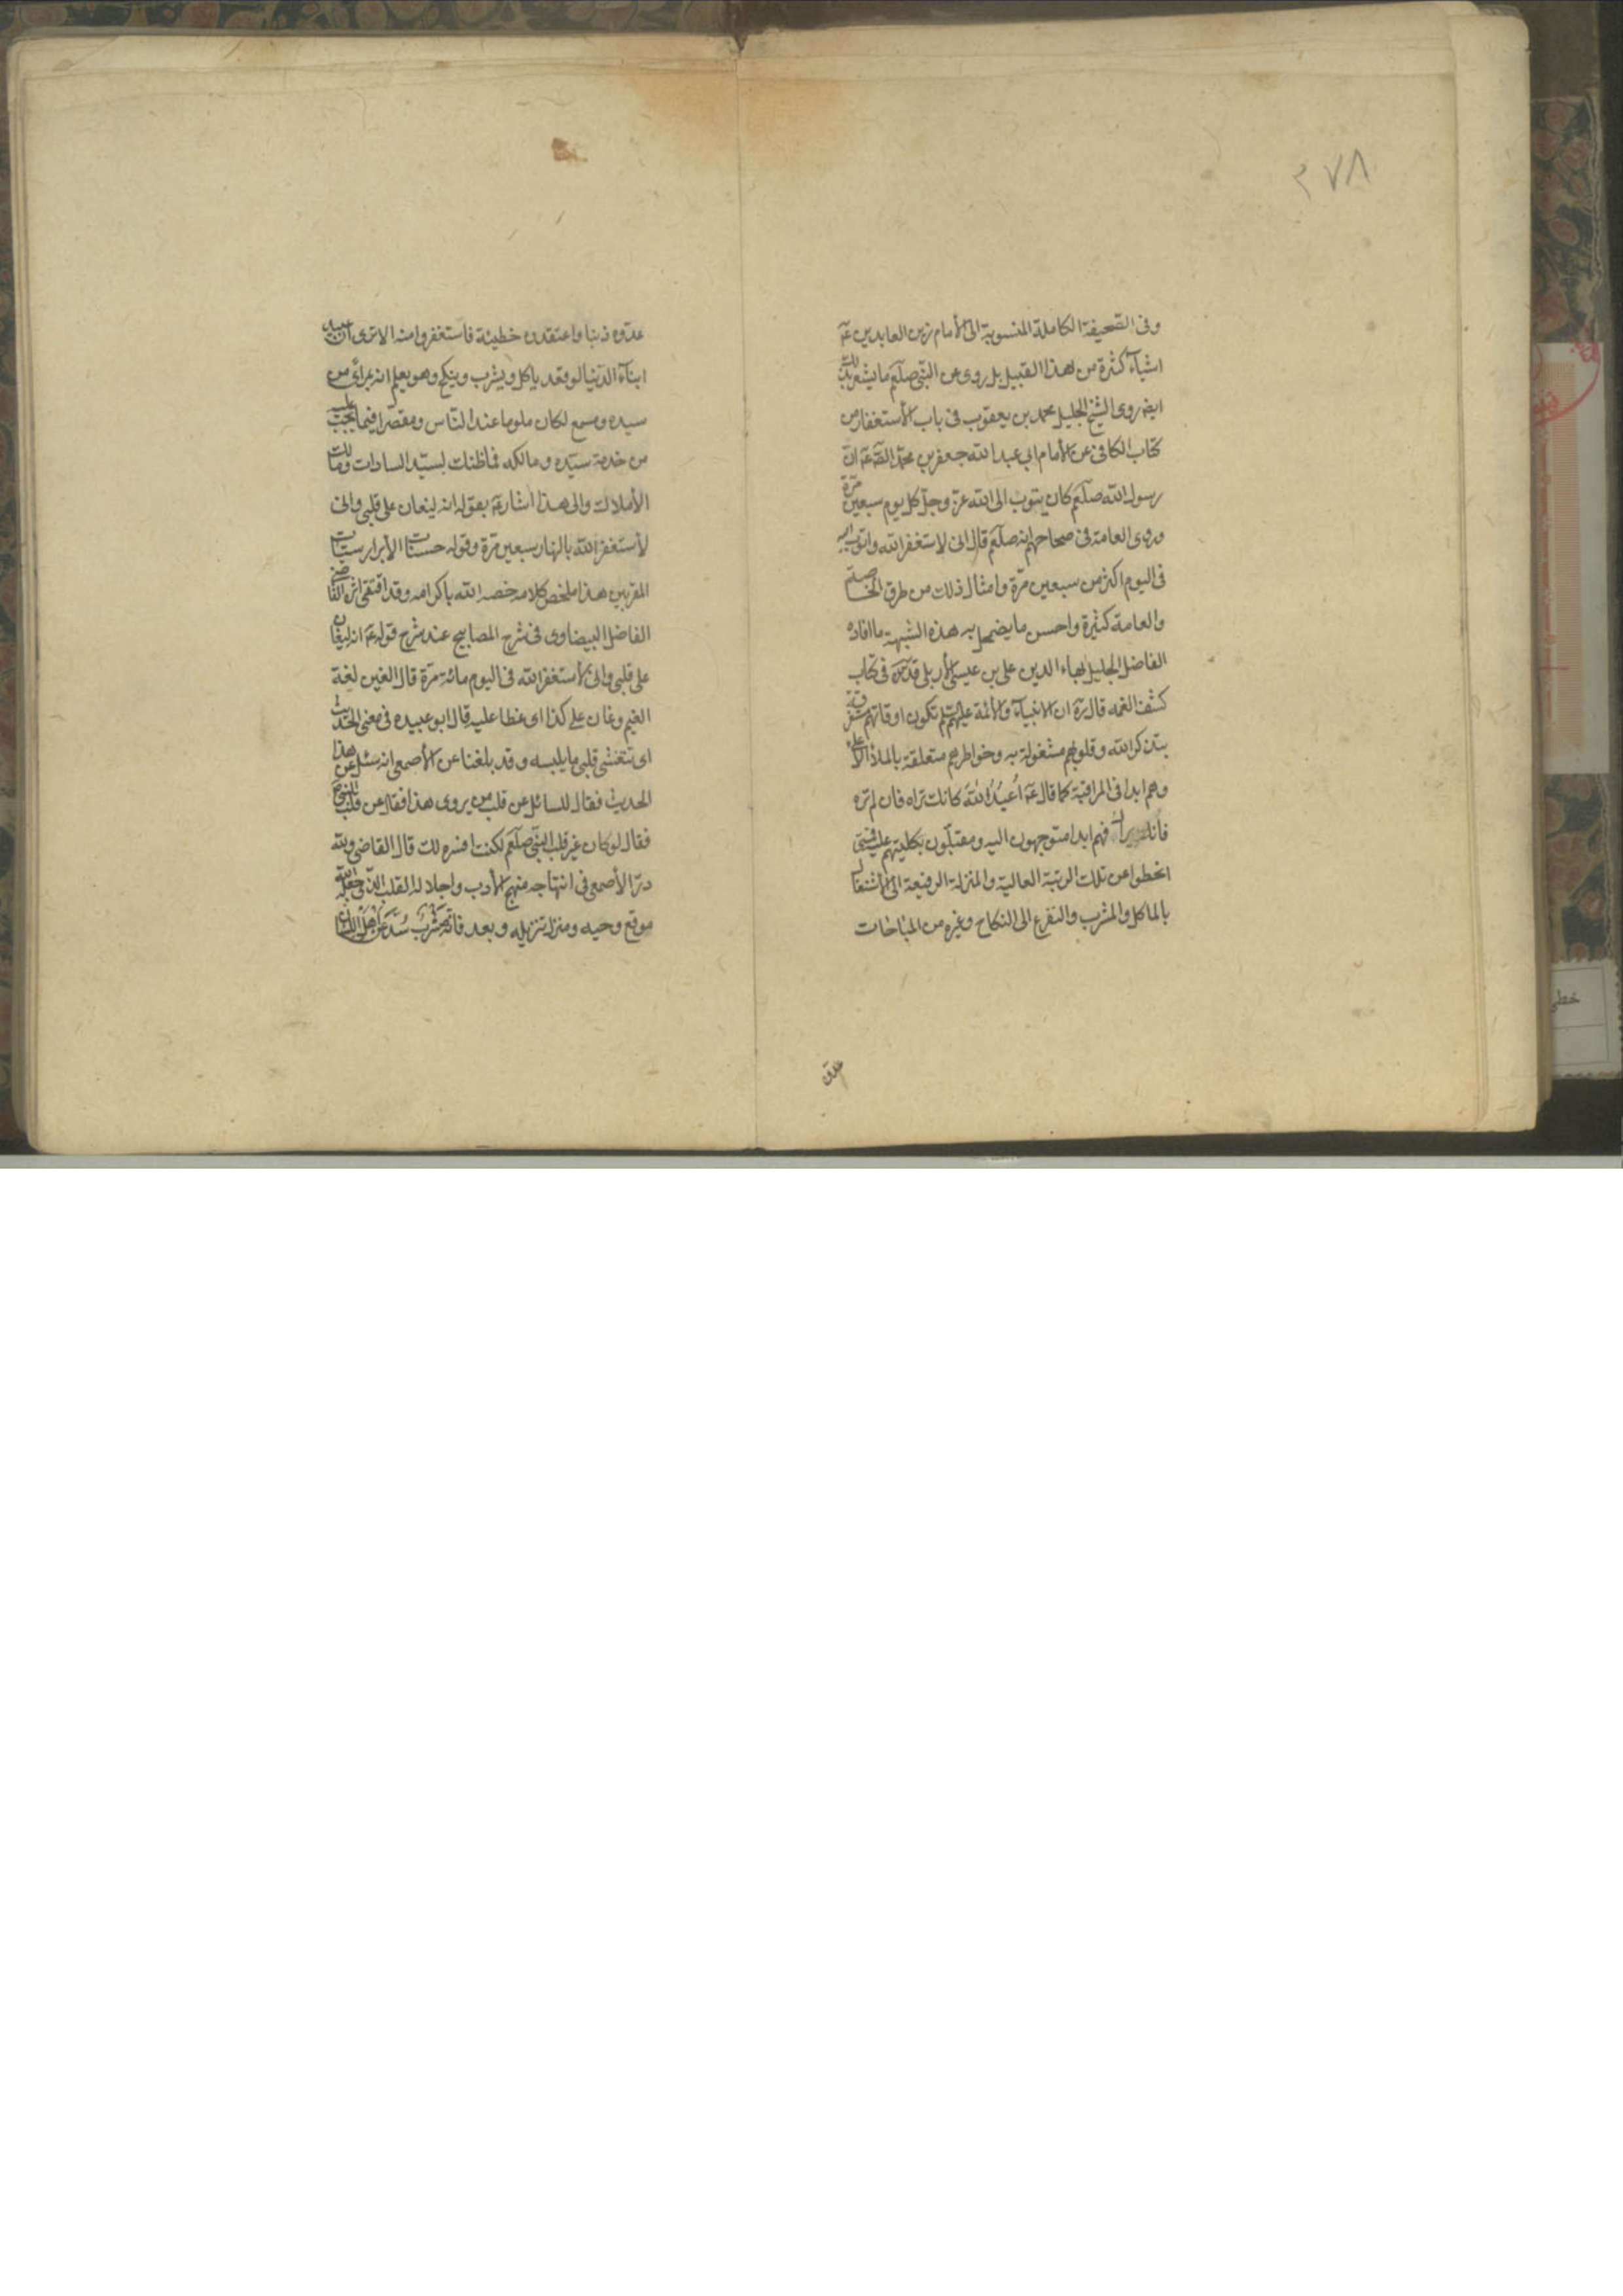 ٢٧٨
وفى الصحيفة الكاملة المنسوبة الى الأمام زين العابدين عۤه
اشيآء كثرة من هذا القبيل بل روى عن النبى صلعم ما يشعر بذلك
ايضه روى الشيخ الجليل محمد بن يعقوب فى باب الأستغفار من
كتاب الكافى عن الأمام ابى عبد الله جعفر بن محمد الصۤه عۤه ان
رسول الله صلعم كان يتوب الى الله عز وجل كل يوم سبعين مرة
وروى العامة فى صحاحهم انه صلعم قال انى لاستغفر الله واتوب اليه
فى اليوم اكثر من سبعين مرة وامثال ذلك من طرق الخاصة
والعامة كثيرة واحسن ما يضمحل به هذه الشبهة ما افاده
الفاضل الجليل بهاء الدين على بن عيسى الأربلى قدۤه فى كتاب
كشف الغمه قال رۤه ان الانبيآء والأئمة عليهم تكون اوقاتهم مستغرقة
بذكر الله وقلوبهم مشغولة به وخواطرهم متعلقة بالملاء الأعلى
وهم ابدا فى المراقبة كما قال عۤه اُعبُدُ اللهَ كانك تراه فان لم تره
فانه يراك فهم ابدا متوجهون اليه ومقبلون بكليتهم عليه فمتى
انحطوا عن تلك الرتبة العالية والمنزلة الرفيعة الى الأشتغال
بالماكل والمشرب والتفرغ الى النكاح وغيره من المباحات
عدوه
عدّوه ذنبا واعتقدوه خطيئة فاستغفروا منه الا ترى ان بعض عبيد
ابنآء الدنيا لو قعد ياكل ويشرب وينكح وهو يعلم انه بمرأى من
سيده ومسمع لكان ملوما عند الناس ومقصرا فيما يجب عليه
من خدمة سيّده ومالكه فما ظنك بسيّد السادات ومالك
الأملاك والى هذا اشار عۤه بقوله انه ليغان على قلبى وانى
لأستغفر الله بالنهار سبعين مرة وقوله حسنات الأبرار سيئات
المقربين هذا ملخص كلامه خصه الله باكرامه وقد اقتفى اثره القاضى
الفاضل البيضاوى فى شرح المصابيح عند شرح قوله عۤه انه ليغان
على قلبى وانى لأستغفر الله فى اليوم مائة مرة قال الغين لغة
الغيم وغان على كذا اى غطا عليه قال ابو عبيده فى معنى الحديث
اى يتغشى قلبى ما يلبسه وقد بلغنا عن الأصمعى انه سئل عن هذا
الحديث فقال للسائل عن قلب من يروى هذا فقال عن قلب النبى
فقال لو كان غير قلب النبى صلعم لكنت افسره لك قال القاضى ولله
درّ الأصمعى فى انتهاجه منهج الأدب واجلاله القلب الذى جعله الله
موقع وحيه ومنزل تنزيله وبعد فانه مشرب سُدَّ عن اهل اللسان